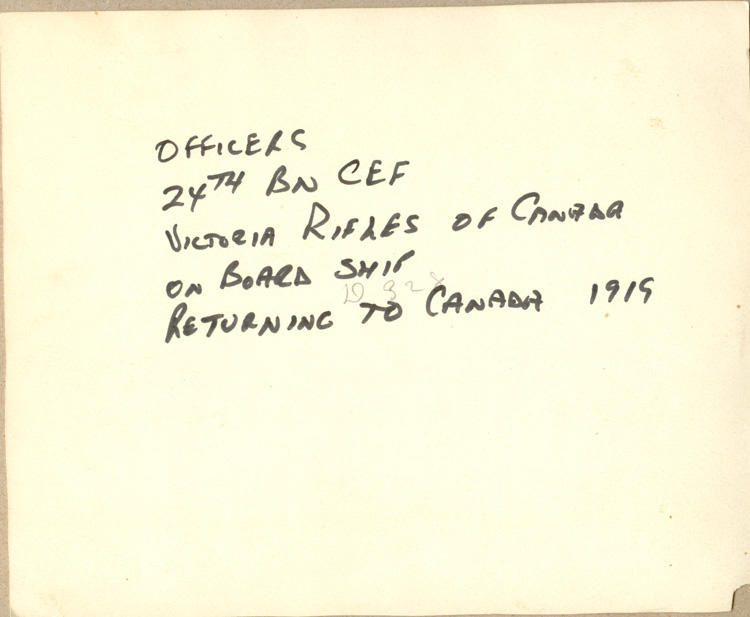 OFFICERS
24TH BN CEF
VICTORIA RIFLES OF CANADA
ON BOARD SHIP
RETURNING TO CANADA 1919